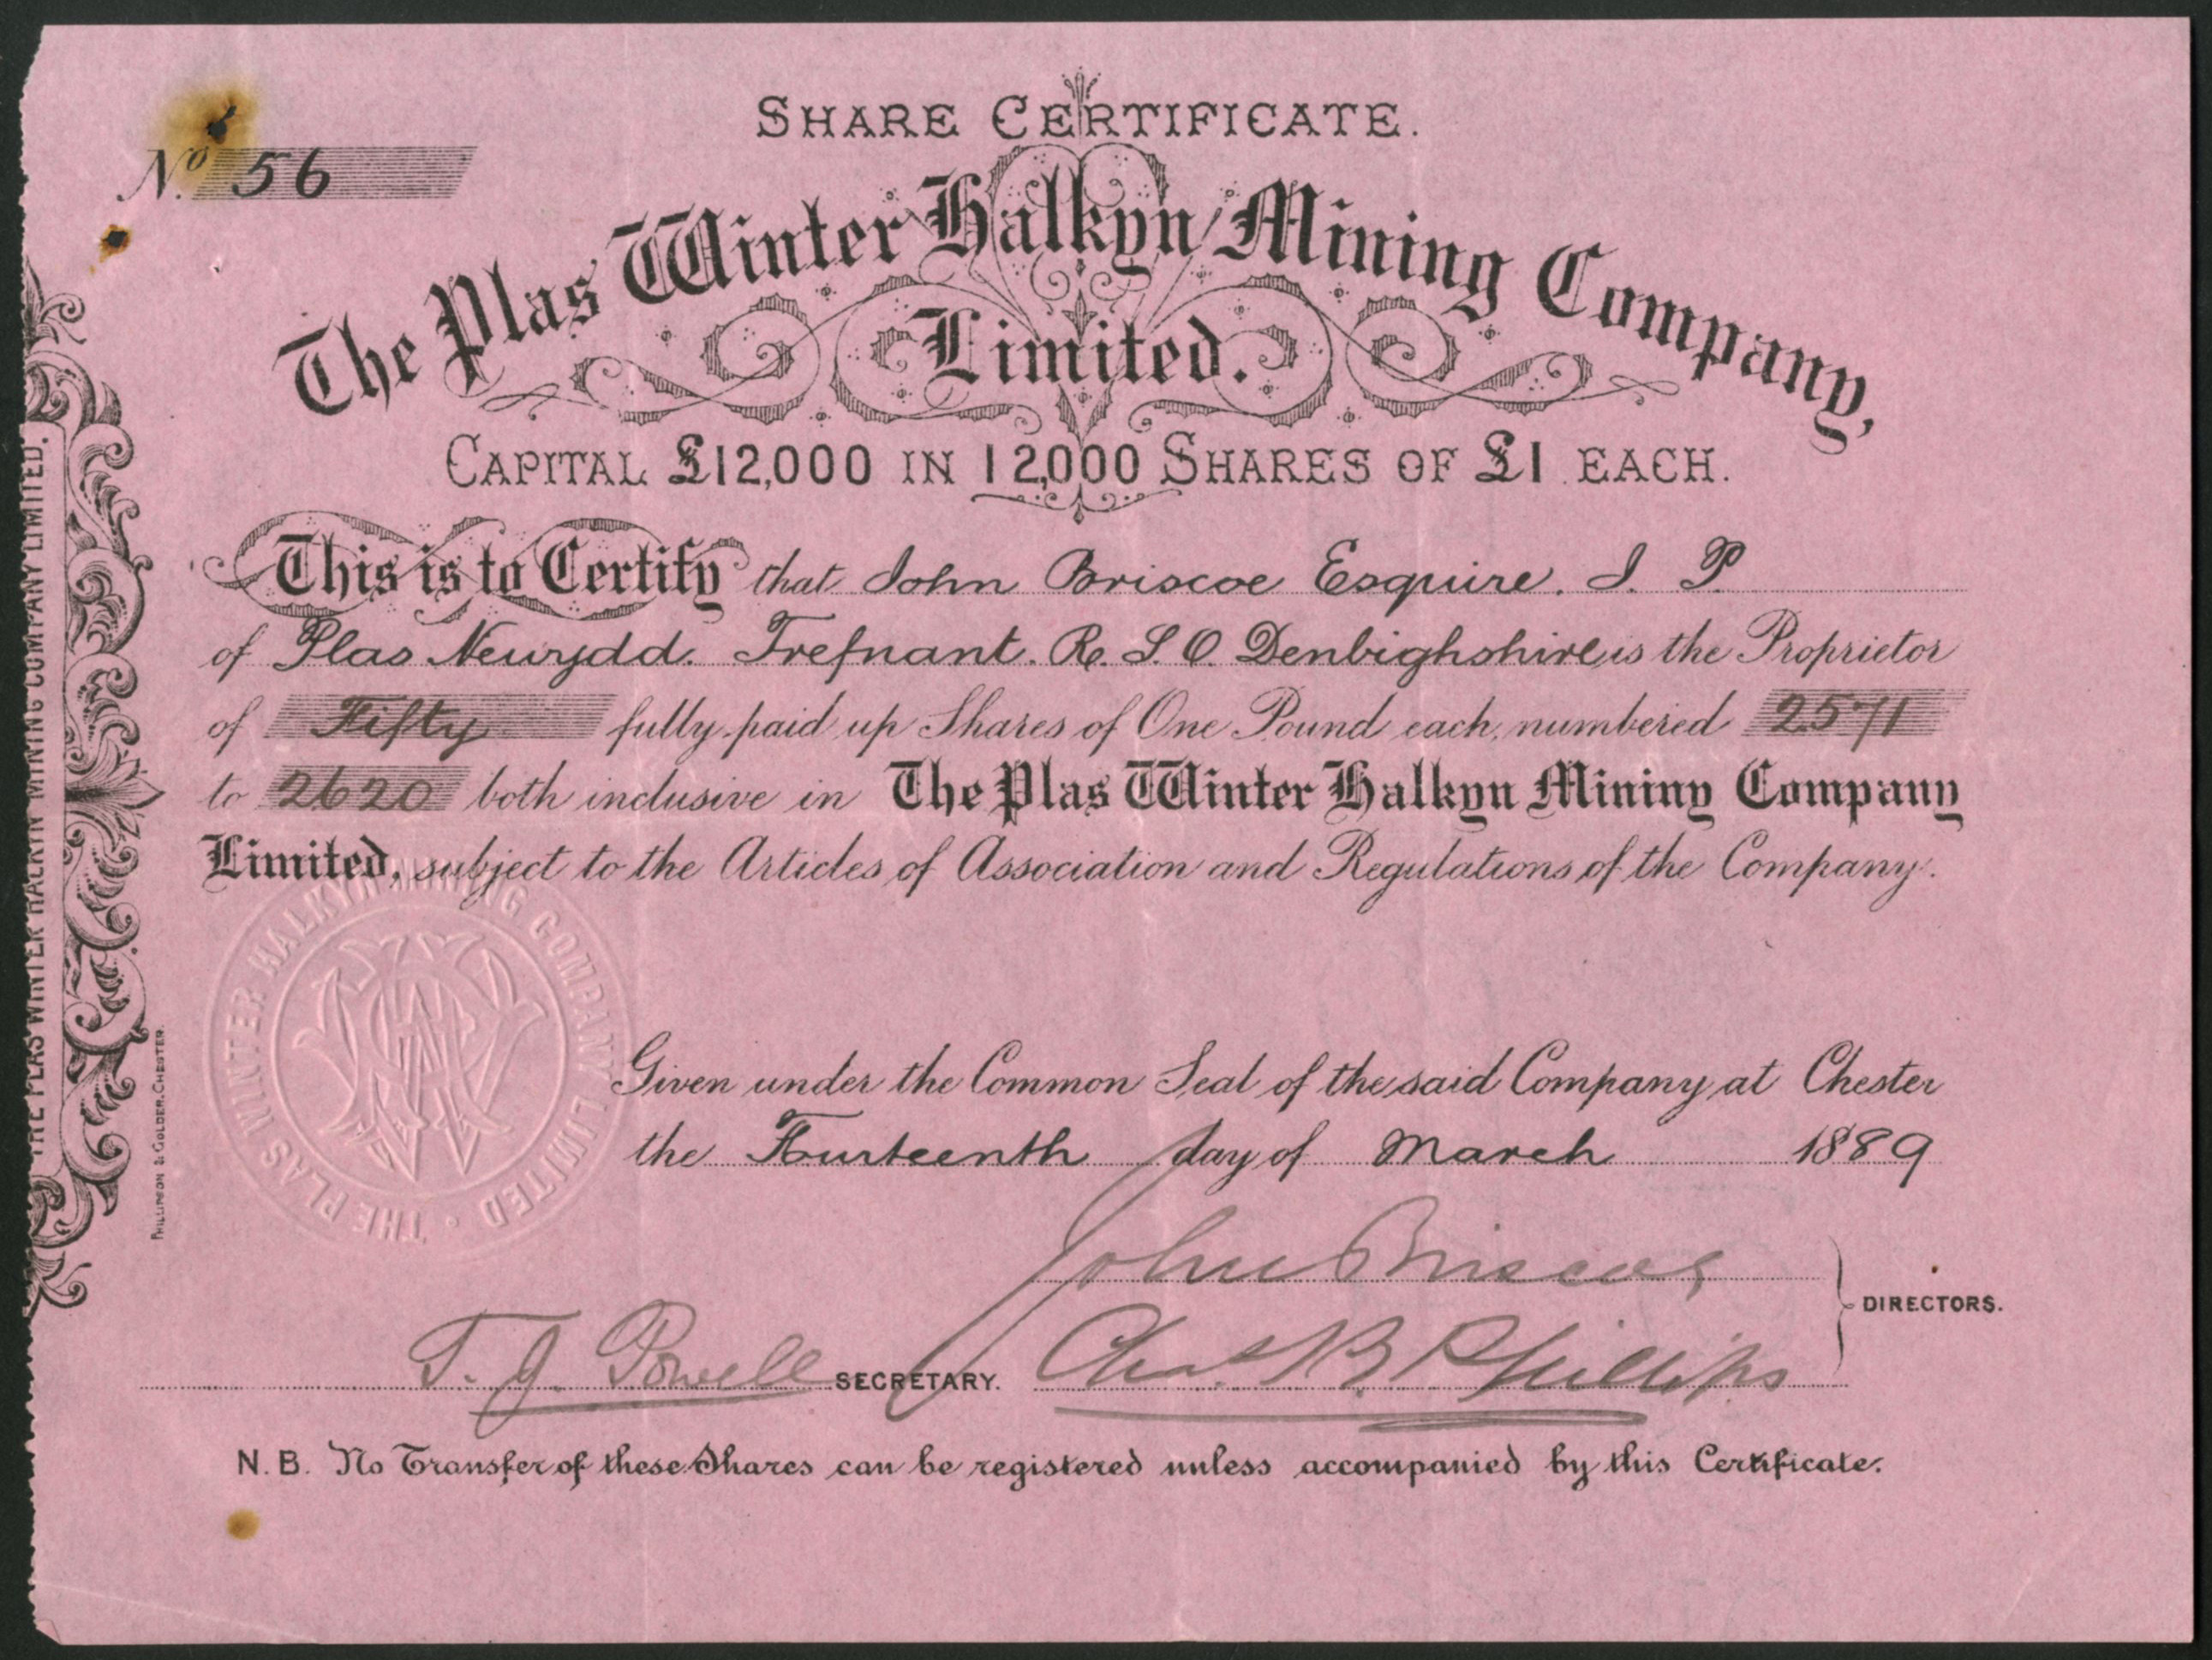 SHARE CERTIFICATE.
No. 56
The Plas Winter Halkyn Mining Company,
Limited.
CAPITAL £12,000 IN 12,000 SHARES OF £1 EACH.
This is to Certify that John Briscoe Esquire. J. P.
of Plas Newydd. Trefnant. R. S. O. Denbighshire is the Proprietor
of Fifty fully paid up Shares of One Pound each, numbered 2571
to 2620 both inclusive in The Plas Winter Halkyn Mining Company
Limited, subject to the Articles of Association and Regulations of the Company.
Given under the Common Seal of the said Company at Chester
the Fourteenth day of March 1889
John Briscoe
DIRECTORS.
T. J. Powell SECRETARY. Chas. B. Phillips
N.B. No Transfer of these Shares can be registered unless accompanied by this Certificate.
THE PLAS WINTER HALKYN MINING COMPANY LIMITED.
PHILLIPSON & GOLDER, CHESTER.
THE PLAS WINTER HALKYN MINING COMPANY LIMITED